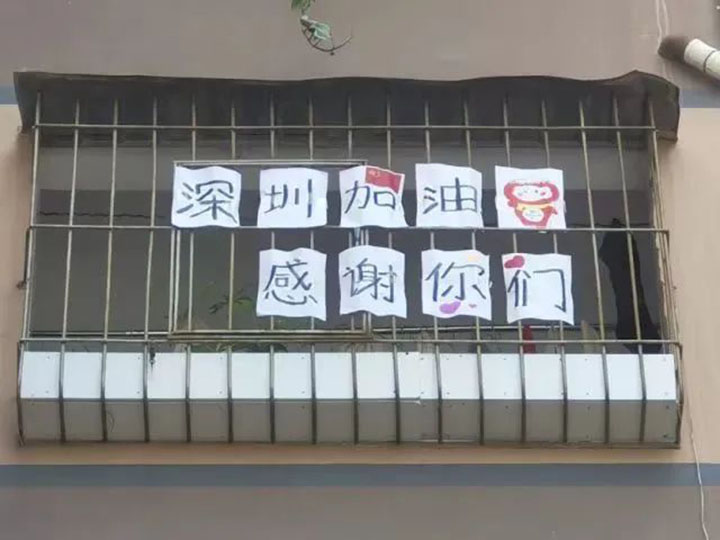 深圳加油
感谢你们